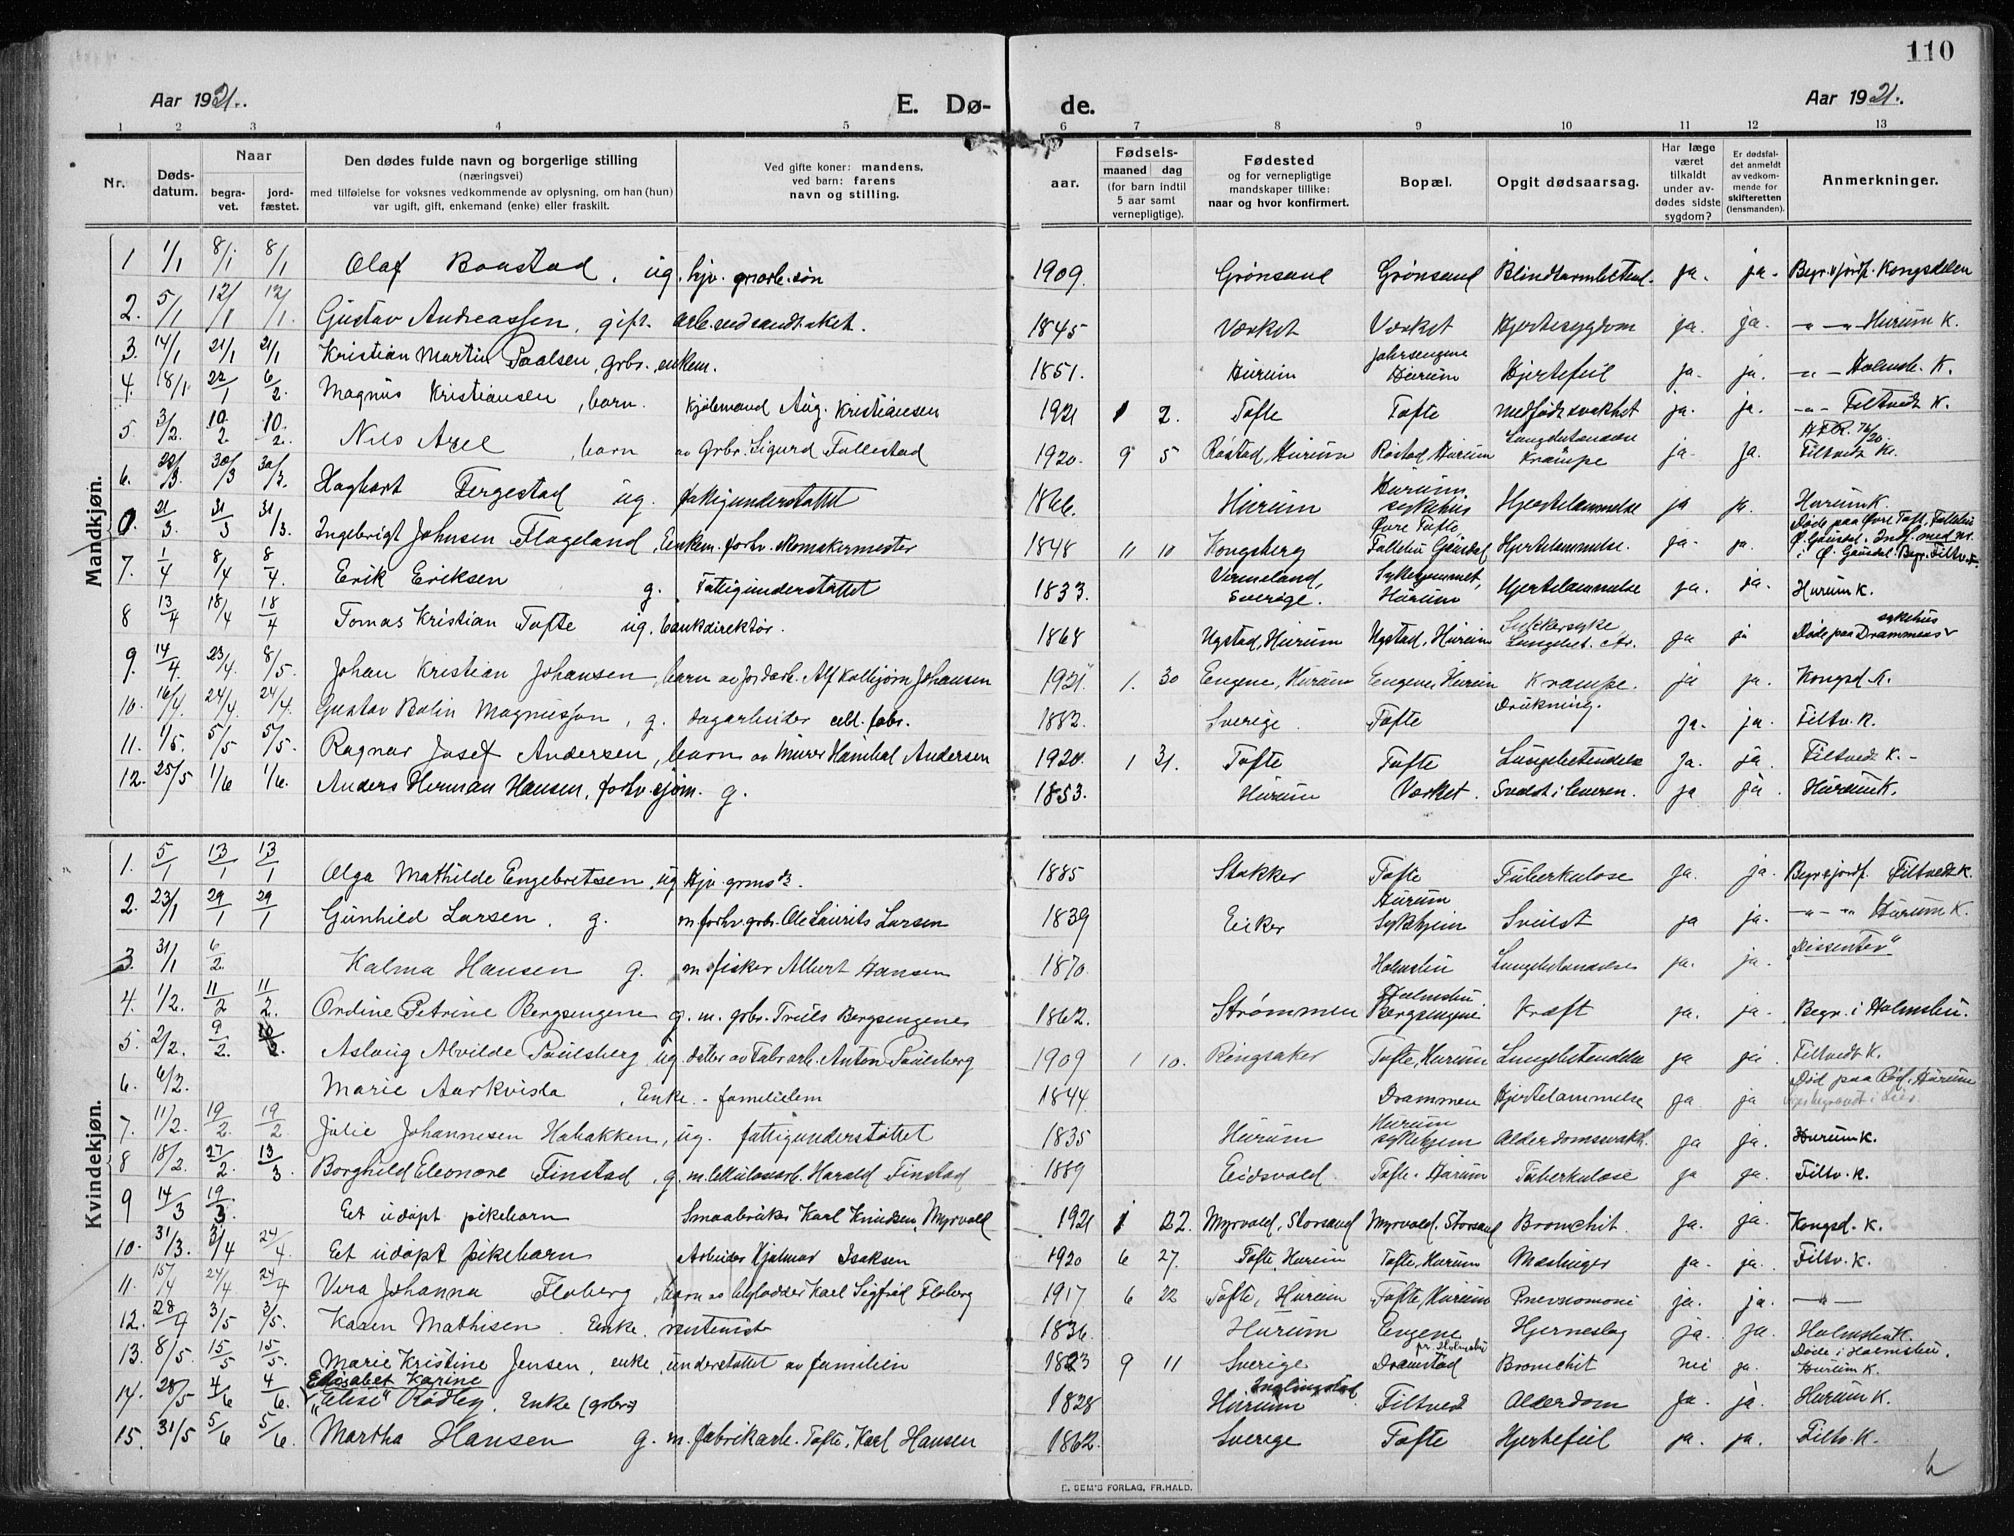 110
Aar 1921. E. Dø- de. Aar 1921.
1 2 3 4 5 6 7 8 9 10 11 12 13
Nr. Døds-datum. Naar begra-vet. jord-fæstet. Den dødes fulde navn og borgerlige stilling (næringsvei) med tilføielse for voksnes vedkommende av oplysning, om han (hun) var ugift, gift, enkemand (enke) eller fraskilt. Ved gifte koner: mandens, ved barn: farens navn og stilling. aar. Fødsels- maaned dag (for barn indtil 5 aar samt vernepligtige). Fødested og for vernepligtige mandskaper tillike: naar og hvor konfirmert. Bopæl. Opgit dødsaarsag. Har læge været tilkaldt under av-dødes sidste sygdom? Er dødsfal-det anmeldt av vedkom-mende for skifteretten (lensmanden). Anmerkninger.
Mandkjøn.
1 1/1 8/1 8/1 Olaf Baastad, ug. hjv. grarb. søn 1909. Grønsand Grønsand Blindtarmbetend. ja. ja. Begr. o jordf. Kongsdelen
2. 5/1 12/1 12/1. Gustav Andreassen, gift. arb. 1845 Værket Værket Hjertesygdom ja. ja. -"- Hurum K.
3. 14/1 21/1 21/1 Kristian Martin Paalsen, grbr. enkem. 1851. Hurum Hurum Hjertefeil ja. ja. -"- Holmsb. K.
4. 18/1. 22/1 6/2. Magnus Kristiansen, barn. Kjølemand Aug. Kristiansen 1921 1 2. Tofte Tofte medfødt svakhet ja. ja. -"- Filtvedt K.
5. 3/2. 10/2. 10/2. Nils Axel, barn av Grbr. Sigurd Follestad 1920. 9 5 Røstad, Hurum Røstad Hurum Lungebetændelse Krampe ja. ja. Filtvedt K.
6. 22/3. 30/3 30/3. Hagbart Fergestad ug. fattigunderstøttet 1866. Hurum Hurum sykehus Hjertelammelse ja ja. Hurum K.
0. 21/3. 31/3 31/3. Ingebrigt Johnsen Flageland, Enkem. forhv. skomakermester 1848 11 10 Kongsberg Øvre Tofte Hjertelammelse. ja. ja. Døde paa Øvre Toft,
7. 1/4 8/4 8/4. Erik Eriksen g. Fattigunderstøttet 1833. Vermeland, Sverige. Hurum Hjertelammelse ja. ja. Hurum K.
8 13/4 18/4 18/4 Tomas Kristian Tofte ug. bankdirektør. 1868 Ugstad, Hurum Ugstad, Hurum Sukkersyke Lungebet. ja ja Døde paa Drammens sykehus
9. 14/4 23/4. 8/5. Johan Kristian Johansen, barn av jordarb. Alf Kolbjørn Johansen 1921 1. 30 Engene, Hurum Engene, Hurum Krampe. ja ja. Kongsd. K.
10. 16/4. 24/4. 24/4. Gustav Bolin Magnusson, g. dagarbeider cel. fabr. 1882. Sverige. Tofte Drukning. ja. ja. Filtv. K.
11. 1/5. 5/5 5/5. Ragnar Josef Andersen, barn av Murer Hanibal Andersen 1920. 1 31. Tofte Tofte Lungebetendelse ja. ja. Filtvedt K. -
12. 25/5 1/6 1/6. Anders Herman Hansen, forhv. sjøm. g. 1853. Hurum Værket. Svulst i leveren. ja ja. Hurum K.
Kvindekjøn.
1. 5/1 13/1 13/1 Olga Mathilde Engebretsen, ug. 1885 Stokker Tofte Tuberkulose ja. ja. Begr. o jordf. Filtvedt K.
2. 23/1 29/1 29/1 Gunhild Larsen. g. m. forhv. grbr. Ole Laurits Larsen 1839 Eiker Hurum Sykehjem Svulst ja ja. -"- -"- Hurum K.
3. 31/1 6/2. Kalma Hansen g. m. fisker Albert Hansen 1870. Holmsbu Lungebetændelse ja. ja. "Dissenter"
4. 1/2. 11/2 11/2. Ordine Petrine Bergsengene g. m. grbr. Truls Bergsengene 1862. Strømmen Holmsbu. Bergsengene Kræft ja. ja. Begr. i Holmsbu.
5. 2/2. 9/2. 10/2. Aslaug Alvilde Paulsberg, ug. datter av Fabr. arb. Anton Paulsberg 1909 1 10. Ringsaker Tofte, Hurum Lungebetendelse ja ja. Filtvedt K.
6. 6/2. Marie Aarkvisla, Enke. - familielem 1844. Drammen Hjertelammelse ja. ja Død paa Rød, Hurum
7. 11/2. 19/2. 19/2 Julie Johannesen Habakken, ug. fattigunderstøttet 1835 Hurum Hurum sykehjem Alderdomssvakh. ja ja. Hurum K.
8 18/2. 27/2. 13/3. Borghild Eleonore Finstad, g. m. Cellulosearb. Harald Finstad 1889 Eidsvold. Tofte. Hurum Tuberkulose ja ja. Filtv. K.
9 14/3 19/3. Eet udøpt pikebarn Smaabruker Karl Knudsen, Myrvold 1921 1 22. Myrvold, Storsand Myrvold, Storsand Bronchit. ja. ja. Kongsd. K.
10. 31/3. 3/4 24/4. Eet udøpt pikebarn Arbeider Hjalmar Isaksen 1920 6 27. Tofte, Hurum Tofte, Hurum Meslinger ja. ja. Filtv. K.
11. 15/4 24/4. 24/4 Vera Johanna Floberg, barn av høvleri Karl Sigfrid Floberg 1917 6 22 Tofte, Hurum Tofte, Hurum Pnevmoni ja. ja. -"-
12. 28/4 3/5 3/5. Karen Mathisen. Enke. rentenist 1836. Hurum Engene Hjerneslag ja. ja. Holmsbu K.
13. 8/5. 15/5 15/5. Marie Kristine Jensen, enke, understøttet av familien 1823 9 11 Sverige Dramstad pr. Holmsbu Bronchit nei ja. Døde i Holmsbu. Hurum K.
14. 28/5 4/6 4/6. Elisabet Karine "Elise" Rødby. Enke (grbr.) 1828 Hurum Filtved Alderdom ja ja. Hurum K.
15. 31/5 5/6 5/6. Martha Hansen g. m. fabrikarb. Tofte, Karl Hansen 1862. Sverige Tofte Hjertefeil ja. ja. Filtv. K.
E. SEM'S FORLAG, FR.HALD.